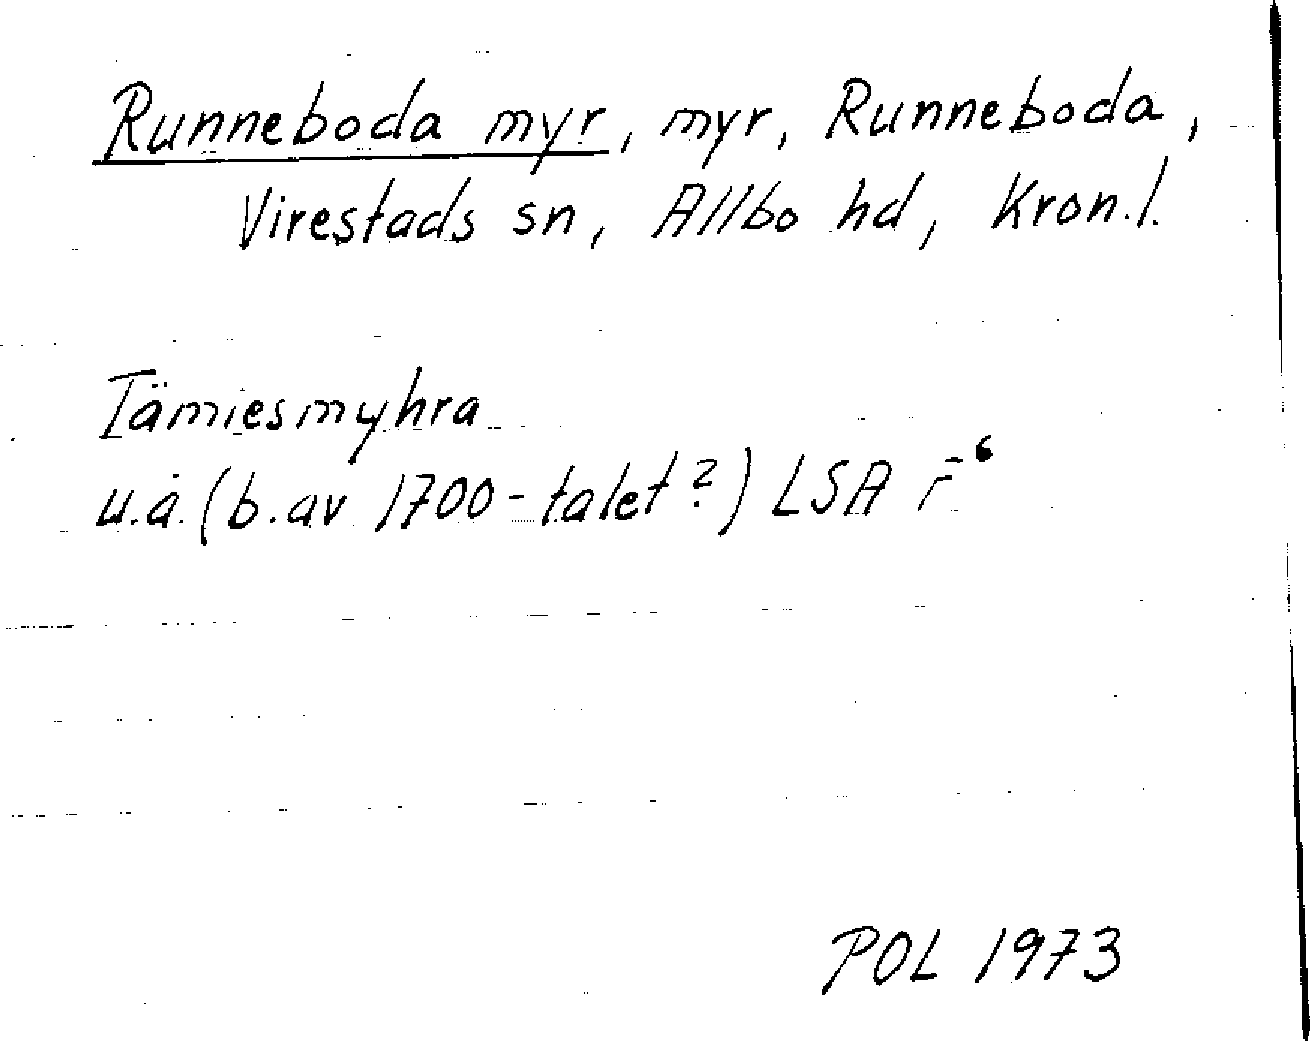 Runneboda myr, myr, Runneboda,
Virestads sn, Allbo hd, Kron.l.
Tämiesmyhra
u.å. (b. av 1700-talet?) LSA r⁻⁶
POL 1973